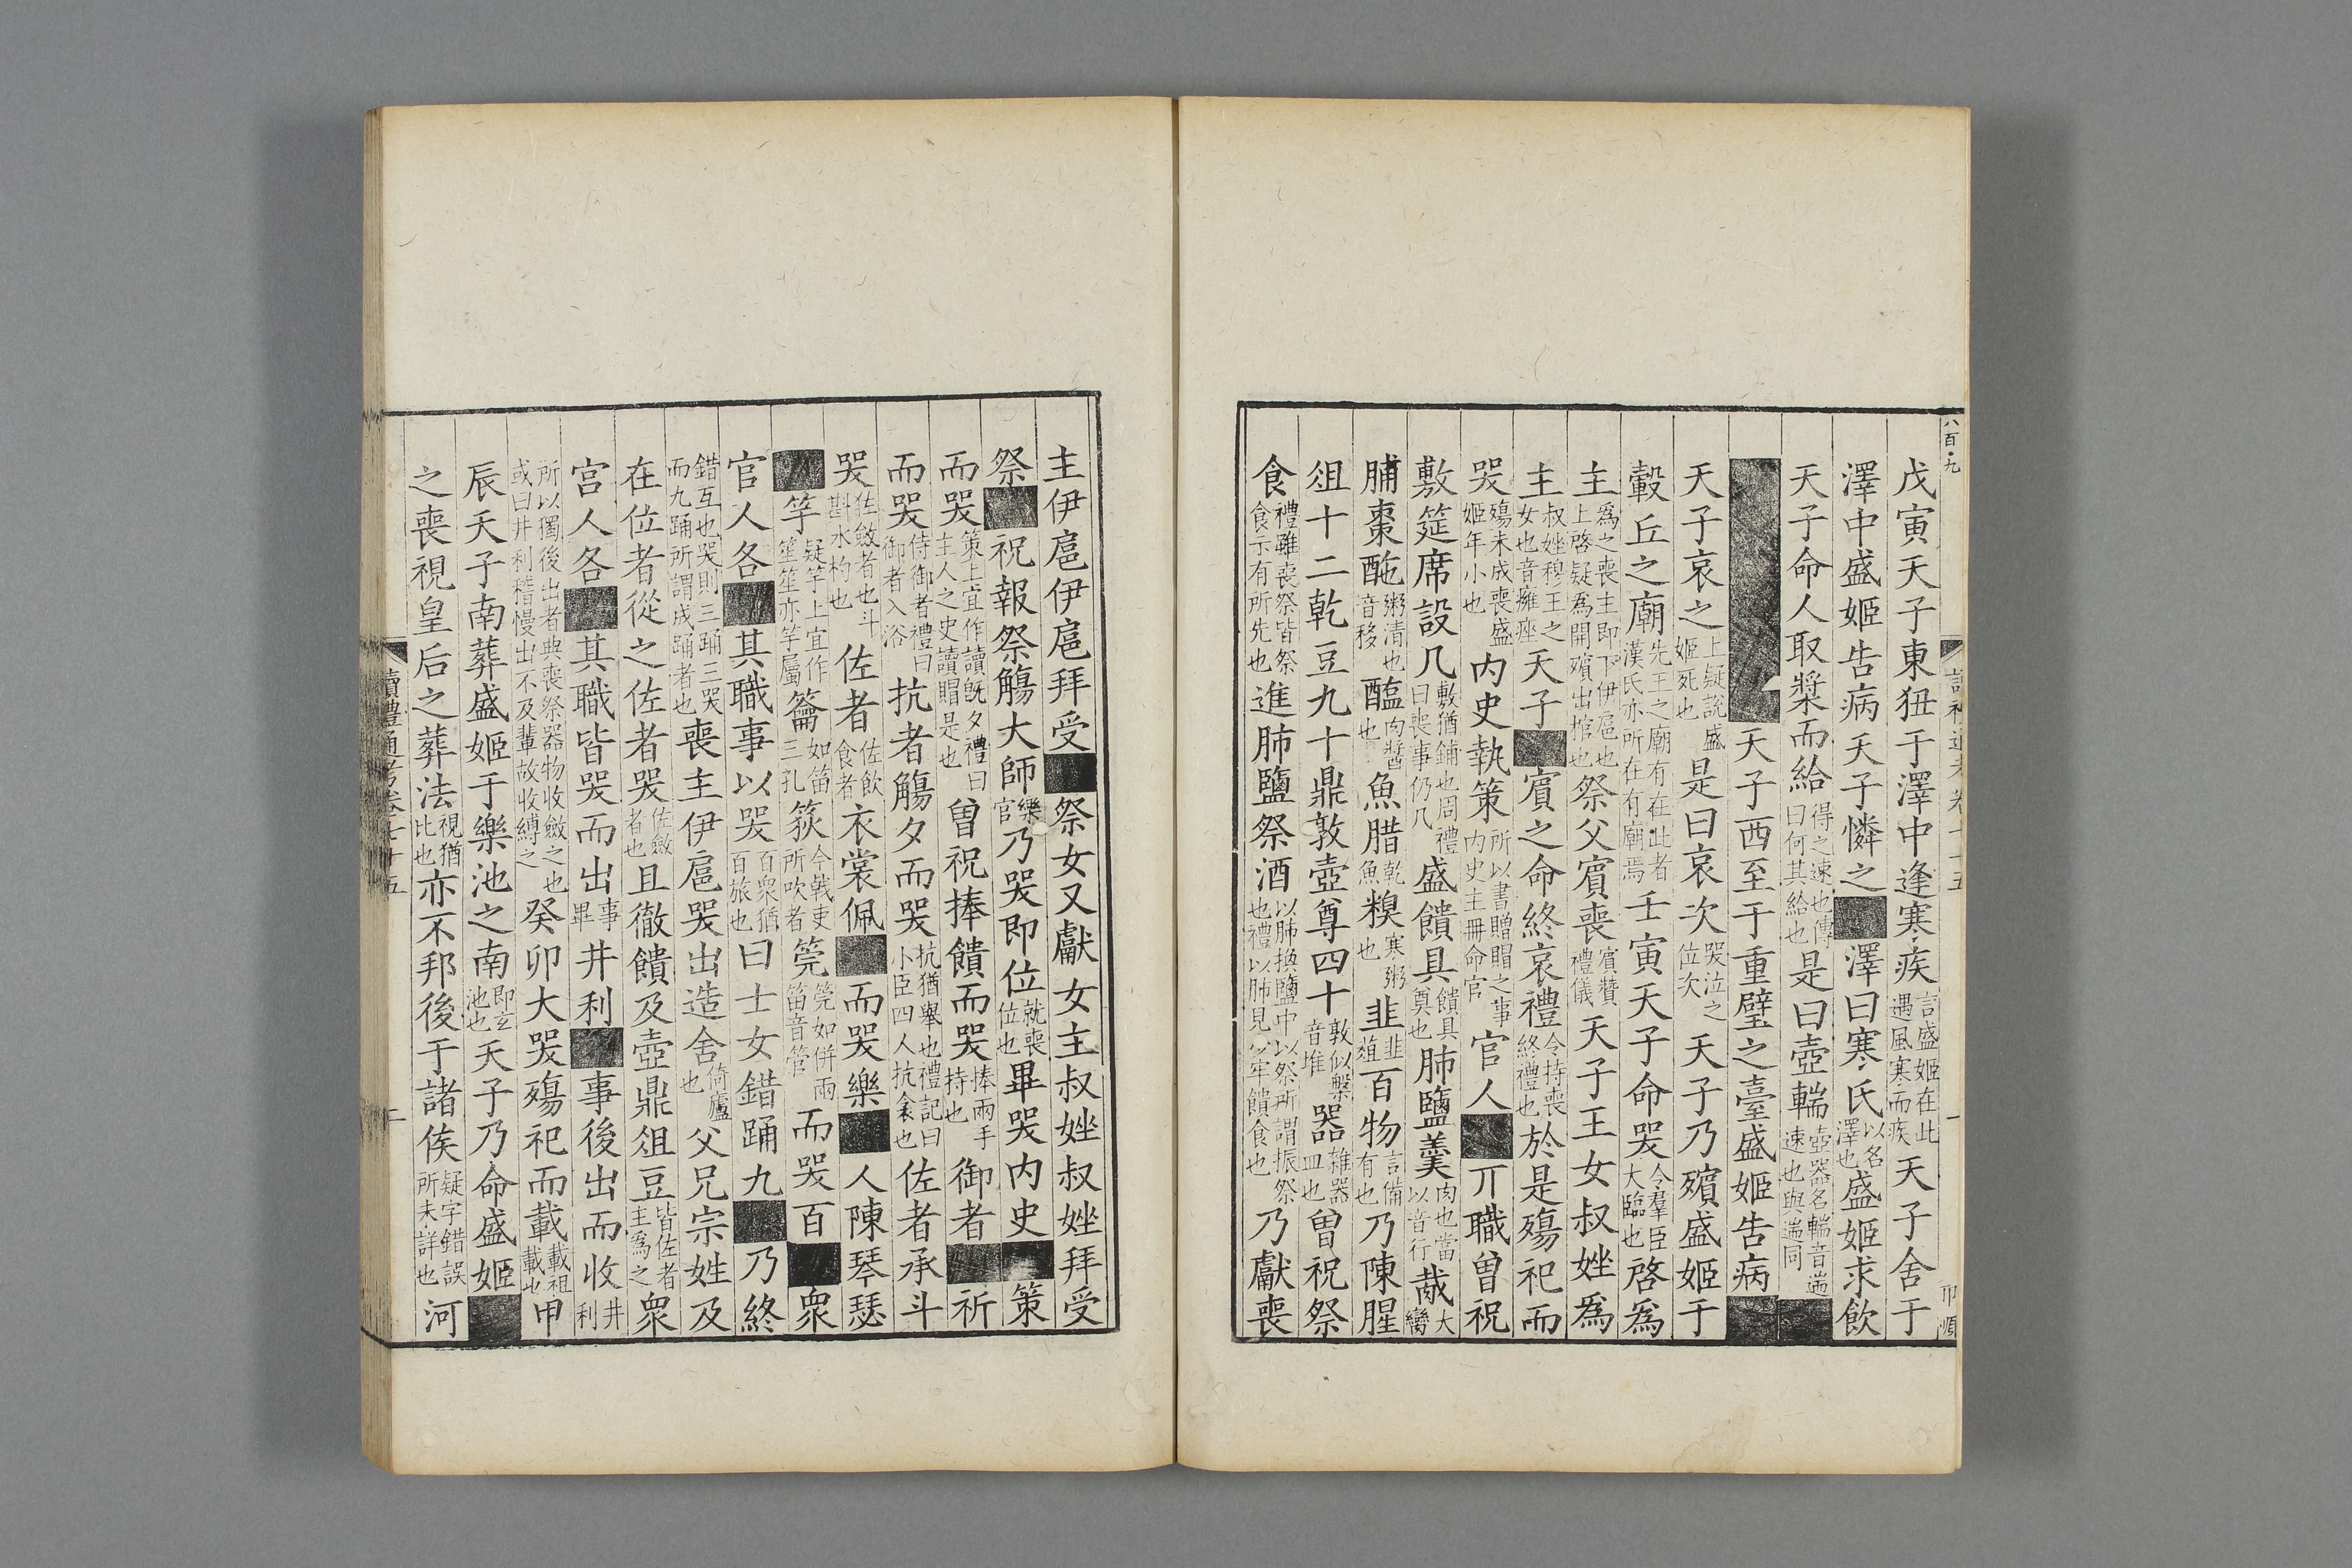 戊寅天子東狃于澤中逢寒疾言盛姬在此遇風寒而疾天子舍于
澤中盛姬告病天子憐之■澤曰寒氏以名澤也盛姬求飲
天子命人取漿而給得之速也傳曰何其給也是曰壺輲壺器名輲音遄速也與遄同■
■天子西至于重璧之臺盛姬告病■
天子哀之上疑說盛姬死也是曰哀次哭泣之位次天子乃殯盛姬于
轂丘之廟先王之廟有在此者漢氏亦所在有廟焉壬寅天子命哭令羣臣大臨也啓爲
主爲之喪主即下伊扈也上啓疑爲開殯出棺也祭父賓喪賓贊禮儀天子王女叔㛗爲
主叔㛗穆王之女也音癰痤天子■賓之命終哀禮令持喪終禮也於是殤祀而
哭殤未成喪盛姬年小也内史執策所以書贈賵之事内史主冊命官官人■丌職曾祝
敷筵席設几敷猶鋪也周禮曰喪事仍几盛饋具饋具奠也肺鹽羹肉也當以音行胾大臠
脯棗酏粥清也音移醢肉醬也魚腊乾魚糗寒粥也韭韭葅百物言備有也乃陳腥
俎十二乾豆九十鼎敦壺尊四十敦似盤音堆器雜器皿也曾祝祭
食禮雖喪祭皆祭食示有所先也進肺鹽祭酒以肺換鹽中以祭所謂振祭也禮以肺見少牢饋食也乃獻喪
主伊扈伊扈拜受■祭女又獻女主叔㛗叔㛗拜受
祭■祝報祭觴大師樂官乃哭即位就喪位也畢哭内史■策
而哭策上宜作讀旣夕禮曰主人之史讀賵是也曾祝捧饋而哭捧兩手持也御者■祈
而哭侍御者禮曰御者入浴抗者觴夕而哭抗猶舉也禮記曰小臣四人抗衾也佐者承斗
哭佐斂者也斗斟水杓也佐者佐飲食者衣裳佩■而哭樂■人陳琴瑟
■竽疑竽上宜作笙笙亦竽屬籥如笛三孔荻今戟吏所吹者筦筦如併兩笛音管而哭百■衆
官人各■其職事以哭百衆猶百旅也曰士女錯踊九■乃終
錯互也哭則三踊三哭而九踊所謂成踊者也喪主伊扈哭出造舍倚廬也父兄宗姓及
在位者從之佐者哭佐斂者也且徹饋及壺鼎俎豆皆佐者主爲之衆
宮人各■其職皆哭而出事畢井利■事後出而收井利
所以獨後出者典喪祭器物收斂之也或曰井利稽慢出不及輩故收縛之癸卯大哭殤祀而載載祖載也甲
辰天子南葬盛姬于樂池之南即玄池也天子乃命盛姬■
之喪視皇后之葬法視猶比也亦不邦後于諸侯疑字錯誤所未詳也河
讀禮通考卷七十五